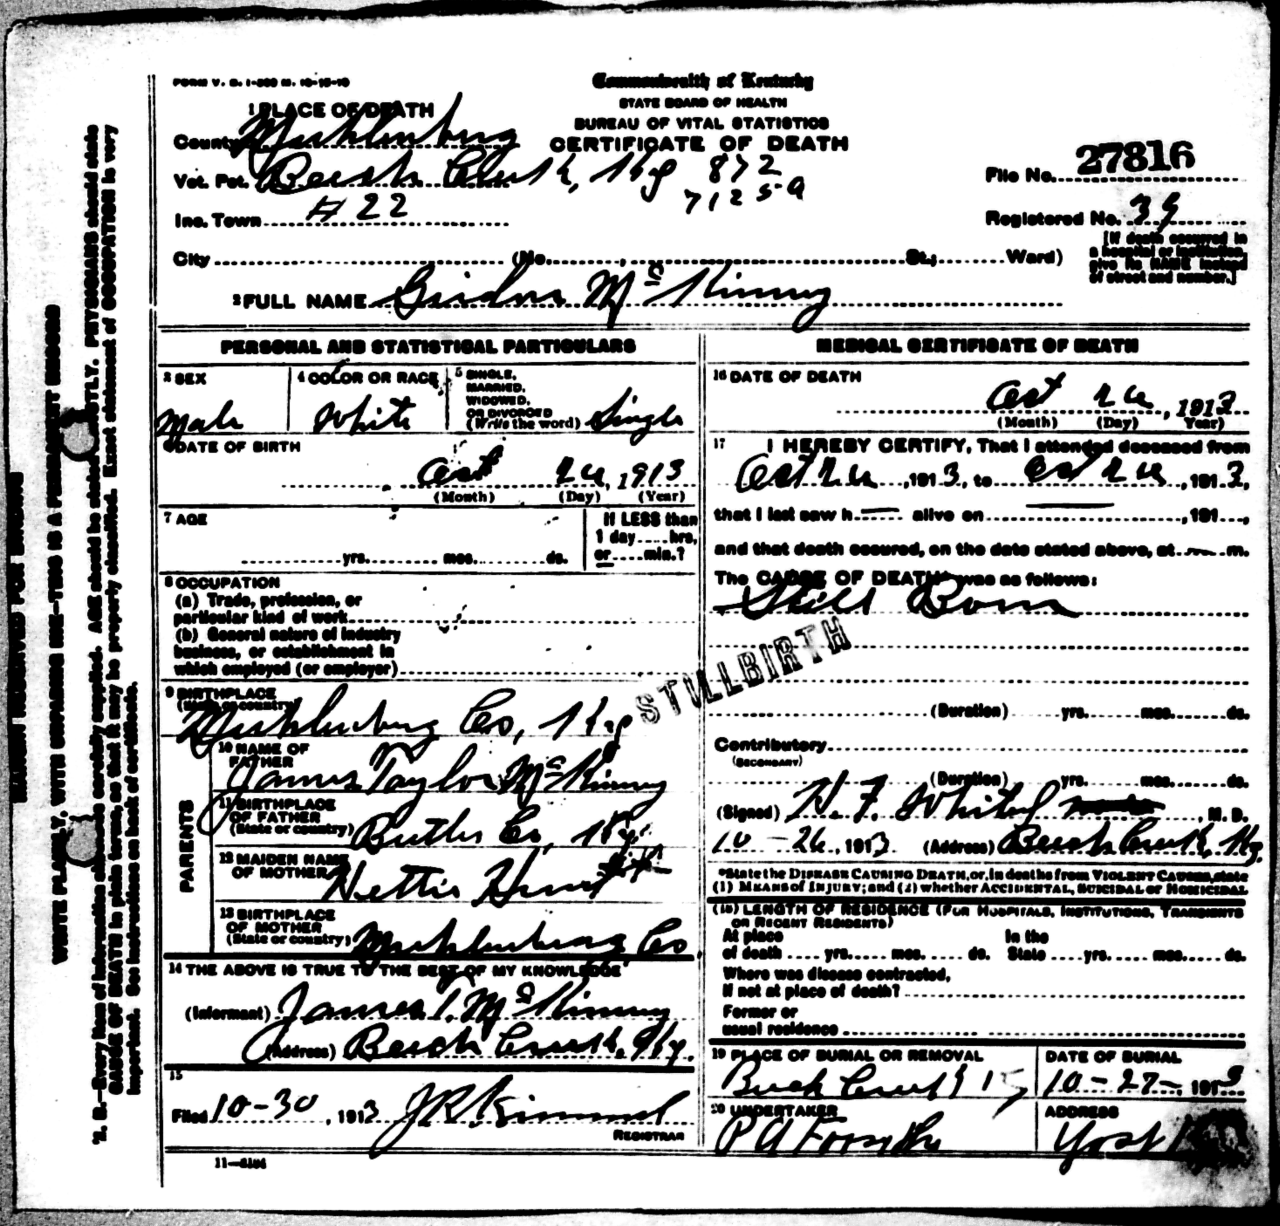 FORM V. S. 1-500 M. 10-15-10
Commonwealth of Kentucky
STATE BOARD OF HEALTH
BUREAU OF VITAL STATISTICS
CERTIFICATE OF DEATH
1 PLACE OF DEATH
County Muhlenburg
Vot. Pct. Beech Creek, Ky 872
71259
Inc. Town # 22
City (No. , St.; Ward)
File No. 27816
Registered No. 39
[If death occurred in a hospital or institution, give its NAME instead of street and number.]
2 FULL NAME McKinney
PERSONAL AND STATISTICAL PARTICULARS
3 SEX
Male
4 COLOR OR RACE
White
5 SINGLE, MARRIED, WIDOWED, OR DIVORCED (Write the word) Single
6 DATE OF BIRTH
Oct 26, 1913
(Month) (Day) (Year)
7 AGE
yrs. mos. ds.
If LESS than 1 day hrs, or min.?
8 OCCUPATION
(a) Trade, profession, or
particular kind of work
(b) General nature of industry
business, or establishment in
which employed (or employer)
9 BIRTHPLACE
(State or country)
Muhlenburg Co, Ky
PARENTS
10 NAME OF FATHER
James Taylor McKinney
11 BIRTHPLACE OF FATHER
(State or country) Butler Co, Ky.
12 MAIDEN NAME OF MOTHER
Hettie
13 BIRTHPLACE OF MOTHER
(State or country) Muhlenburg Co
14 THE ABOVE IS TRUE TO THE BEST OF MY KNOWLEDGE
(Informant) James T. McKinney
(Address) Beech Creek, Ky.
15
Filed 10-30, 1913 J R Kimmel
REGISTRAR
11—3184
MEDICAL CERTIFICATE OF DEATH
16 DATE OF DEATH
Oct 26, 1913
(Month) (Day) Year)
17 I HEREBY CERTIFY, That I attended deceased from
Oct 26, 1913, to Oct 26, 1913,
that I last saw h alive on , 191 ,
and that death occured, on the date stated above, at m.
The CAUSE OF DEATH* was as follows:
Still Born
STILLBIRTH
(Duration) yrs. mos. ds.
Contributory
(SECONDARY)
(Duration) yrs. mos. ds.
(Signed) , M. D.
10-26, 1913 (Address) Beech Creek, Ky.
*State the DISEASE CAUSING DEATH, or, in deaths from VIOLENT CAUSES, state
(1) MEANS of INJURY; and (2) whether ACCIDENTAL, SUICIDAL or HOMICIDAL
(18) LENGTH OF RESIDENCE (FOR HOSPITALS, INSTITUTIONS, TRANSIENTS
OR RECENT RESIDENTS)
At place of death yrs. mos. ds. In the State yrs. mos. ds.
Where was disease contracted,
if not at place of death?
Former or
usual residence
19 PLACE OF BURIAL OR REMOVAL
Beech Creek
DATE OF BURIAL
10-27-, 1913
20 UNDERTAKER
P A Forsythe
ADDRESS
Yost
MARGIN RESERVED FOR BINDING
WRITE PLAINLY, WITH UNFADING INK—THIS IS A PERMANENT RECORD
N. B.—Every item of information should be carefully supplied. AGE should be stated EXACTLY. PHYSICIANS should state
CAUSE OF DEATH in plain terms, so that it may be properly classified. Exact statement of OCCUPATION is very
important. See instructions on back of certificate.